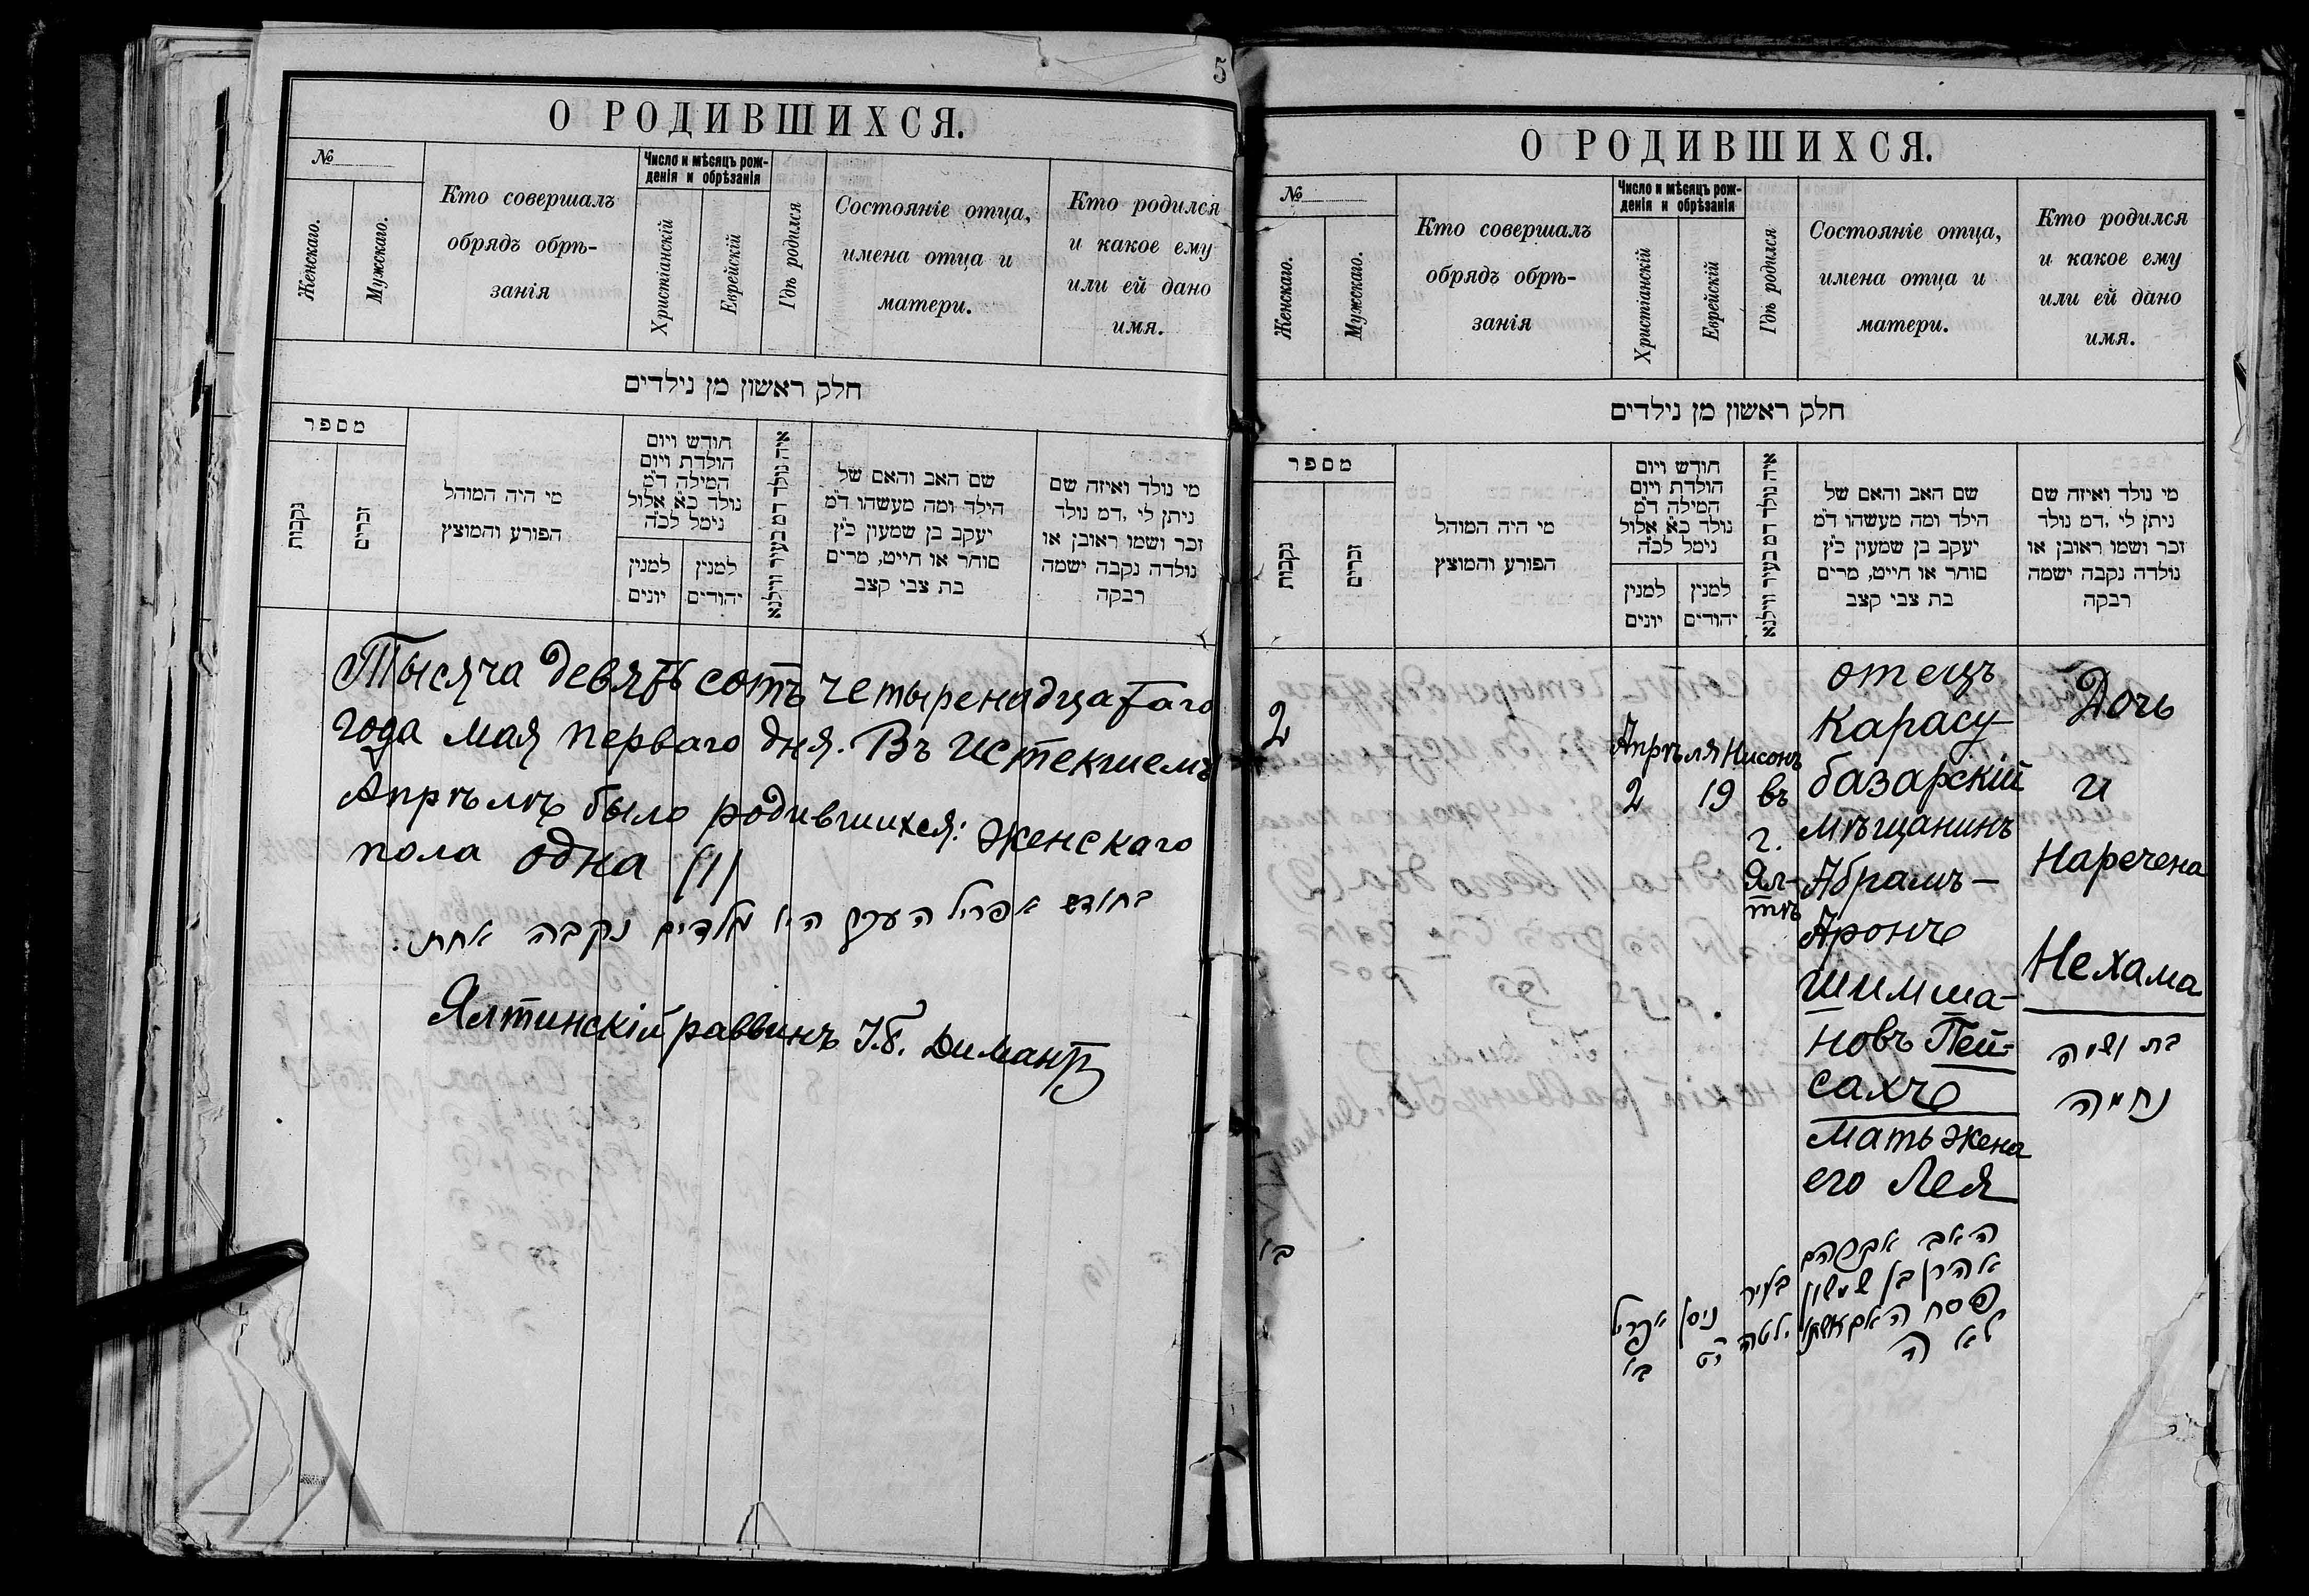 5
О РОДИВШИХСЯ.
№
Женскаго.
Мужскаго.
Кто совершалъ
обрядъ обрѣ-
занія
Число и мѣсяцъ рож-
денія и обрѣзанія
Христіанскій
Еврейскій
Гдѣ родился
Состояніе отца,
имена отца и
матери.
Кто родился
и какое ему
или ей дано
имя.
חלק ראשון מן נילדים
מספר
נקבות
זכרים
מי היה המוהל
הפורע והמוצץ
חודש ויום
הולדת ויום
המילה ד״מ
נולד כ״א אלול
נימל לכ״ה
למנין
יונים
למנין
יהודים
איה נולד דמ בעיר ווילנא
שם האב והאם של
הילד ומה מעשהו ד״מ
יעקב בן שמעון כ״ץ
סוחר או חייט, מרים
בת צבי קצב
מי נולד ואיזה שם
ניתן לי ,דמ נולד
זכר ושמו ראובן או
נולדה נקבה ישמה
רבקה
Тысяча девятьсотъ четыренадцатаго
года мая перваго дня. Въ истекшемъ
Апрѣлѣ было родившихся: женскаго
пола одна (1)
בחודש אפריל העבר היו נולדים נקבה אחת.
Ялтинскій раввинъ І.Б. Димантъ
О РОДИВШИХСЯ.
№
Женскаго.
Мужскаго.
Кто совершалъ
обрядъ обрѣ-
занія
Число и мѣсяцъ рож-
денія и обрѣзанія
Христіанскій
Еврейскій
Гдѣ родился
Состояніе отца,
имена отца и
матери.
Кто родился
и какое ему
или ей дано
имя.
חלק ראשון מן נילדים
מספר
נקבות
זכרים
מי היה המוהל
הפורע והמוצץ
חודש ויום
הולדת ויום
המילה ד״מ
נולד כ״א אלול
נימל לכ״ה
למנין
יונים
למנין
יהודים
איה נולד דמ בעיר ווילנא
שם האב והאם של
הילד ומה מעשהו ד״מ
יעקב בן שמעון כ״ץ
סוחר או חייט, מרים
בת צבי קצב
מי נולד ואיזה שם
ניתן לי ,דמ נולד
זכר ושמו ראובן או
נולדה נקבה ישמה
רבקה
2
Апрѣля
2
Нисонъ
19
въ
г.
Ял-
тѣ
отецъ
Карасу
базарскій
мѣщанинъ
Абрамъ-
Аронъ
Шимша-
новъ Пей-
сахъ
мать жена
его Лея
Дочь
и
Наречена
Нехама
בת ושמה
נחמה
ב׳
אפריל
ב׳
ניסן
יט
בעיר
ילטה
האב אברהם
אהרן בן שמשון
פסח האם אשתו
לאה